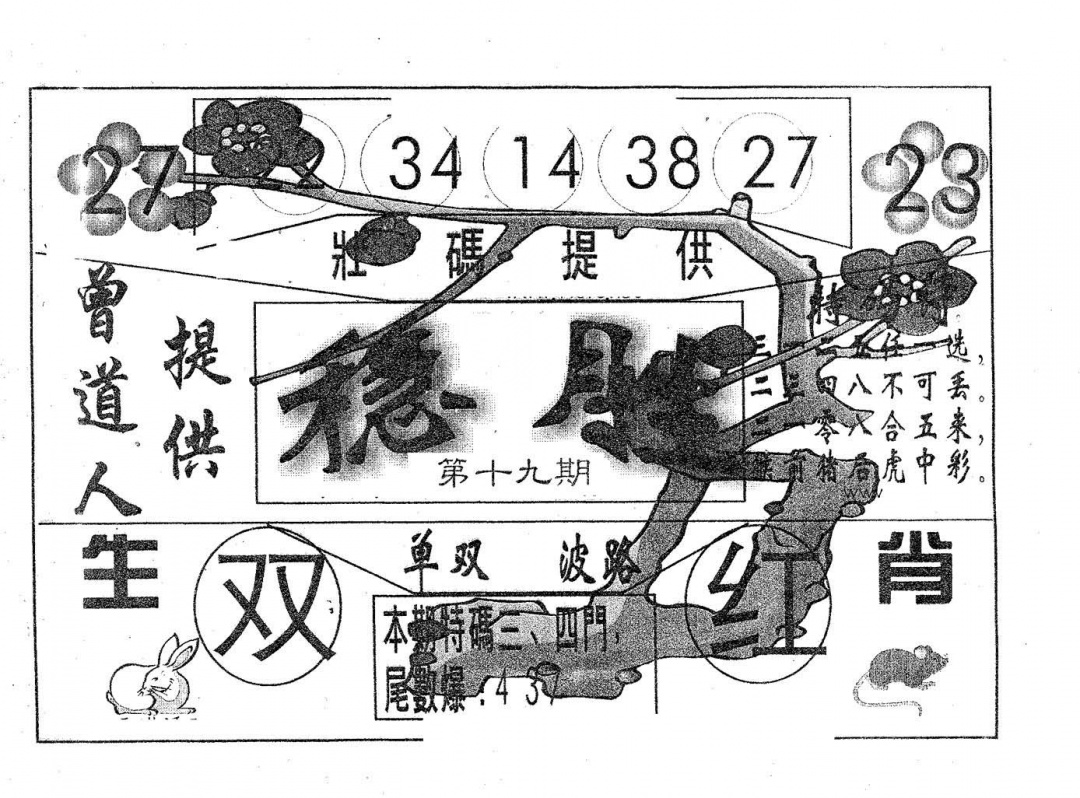 27 34 14 38 27 23
壯碼提供
曾道人
提供
穩勝
第十九期
特
五任一选，
二三四八不可丢。
零八合五来，
猪后虎中彩。
www
生
双
单双 波路
红
肖
本期特碼三、四門，
尾數爆：4 3